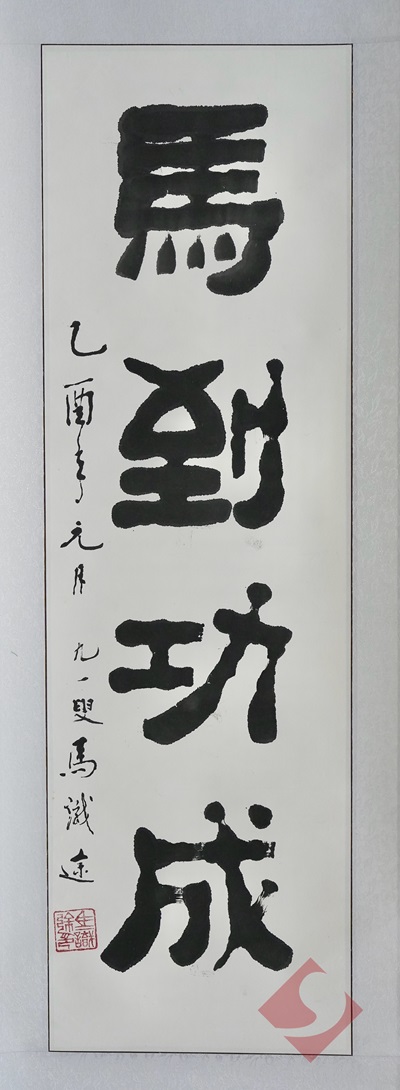 馬到功成
乙酉年元月 九一叟馬識途